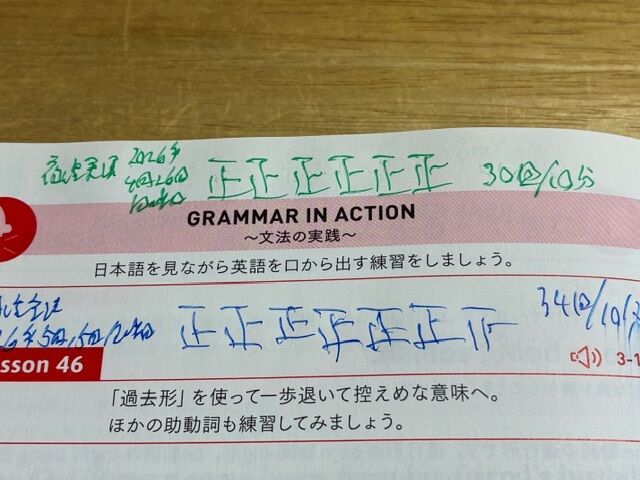 2026年
正正正正正正 30回/10分
GRAMMAR IN ACTION
〜文法の実践〜
日本語を見ながら英語を口から出す練習をしましょう。
正正正正正正正 34回/10分
sson 46
3-1
「過去形」を使って一歩退いて控えめな意味へ。
ほかの助動詞も練習してみましょう。